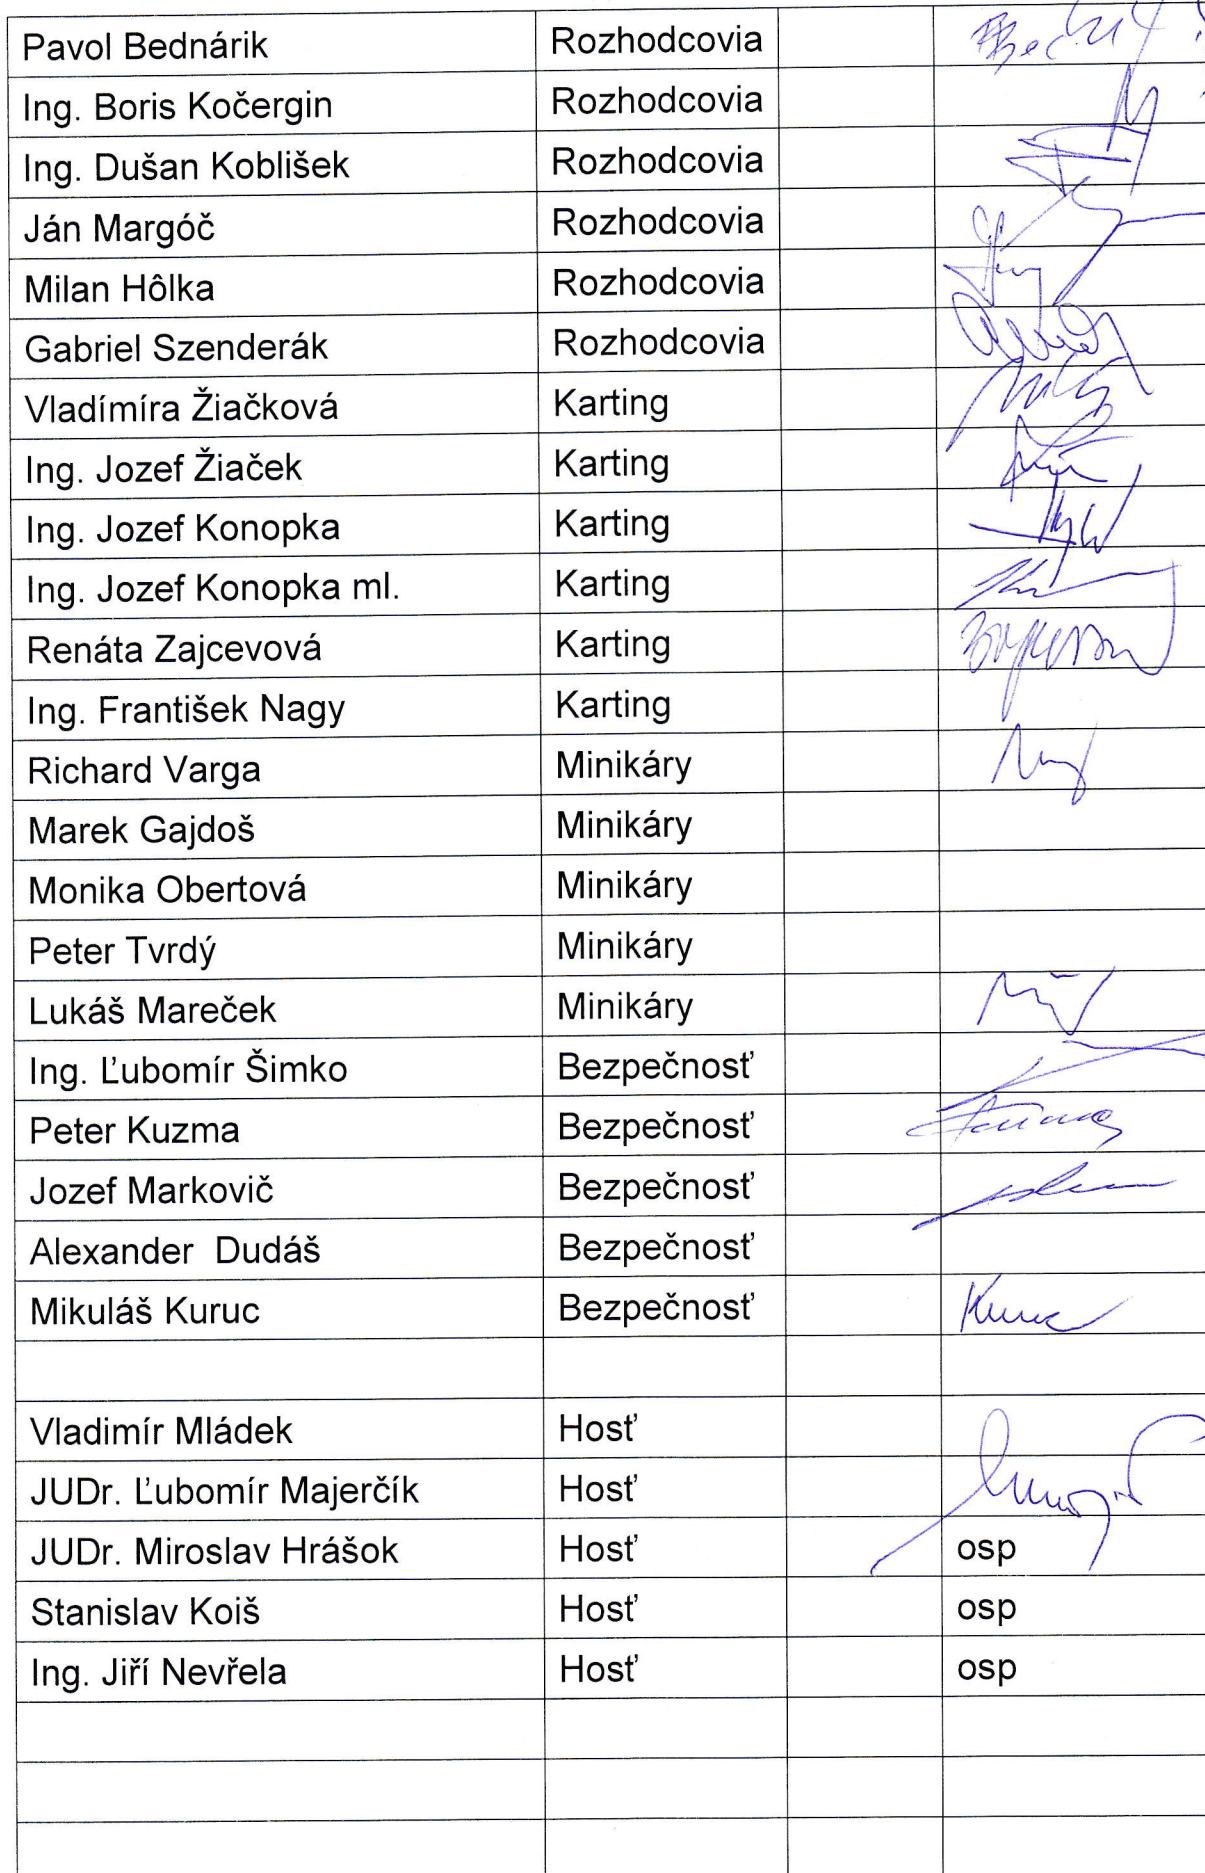 Pavol Bednárik Rozhodcovia
Ing. Boris Kočergin Rozhodcovia
Ing. Dušan Koblišek Rozhodcovia
Ján Margóč Rozhodcovia
Milan Hôlka Rozhodcovia
Gabriel Szenderák Rozhodcovia
Vladímíra Žiačková Karting
Ing. Jozef Žiaček Karting
Ing. Jozef Konopka Karting
Ing. Jozef Konopka ml. Karting
Renáta Zajcevová Karting
Ing. František Nagy Karting
Richard Varga Minikáry
Marek Gajdoš Minikáry
Monika Obertová Minikáry
Peter Tvrdý Minikáry
Lukáš Mareček Minikáry
Ing. Ľubomír Šimko Bezpečnosť
Peter Kuzma Bezpečnosť
Jozef Markovič Bezpečnosť
Alexander Dudáš Bezpečnosť
Mikuláš Kuruc Bezpečnosť Kuruc
Vladimír Mládek Hosť
JUDr. Ľubomír Majerčík Hosť
JUDr. Miroslav Hrášok Hosť osp
Stanislav Koiš Hosť osp
Ing. Jiří Nevřela Hosť osp